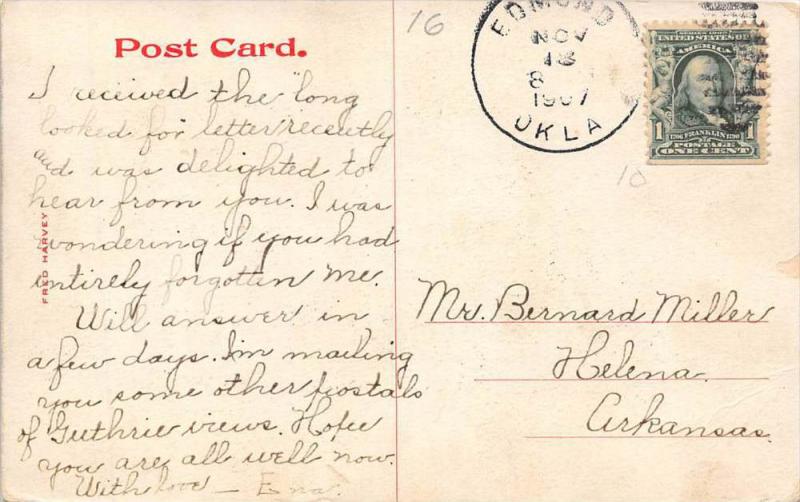 Post Card.
16
EDMOND
NOV
18
8
1907
OKLA
SERIES 1902
UNITED STATES OF
AMERICA
1 1706 FRANKLIN 1790 1
POSTAGE
ONE CENT
10
FRED HARVEY
I received the "long
looked for" letter recently
and was delighted to
hear from you. I was
wondering if you had
entirely forgotten me.
Will answer in
a few days. I'm mailing
you some other postals
of Guthrie views. Hope
you are all well now.
With love — Ena.
Mr. Bernard Miller
Helena.
Arkansas.